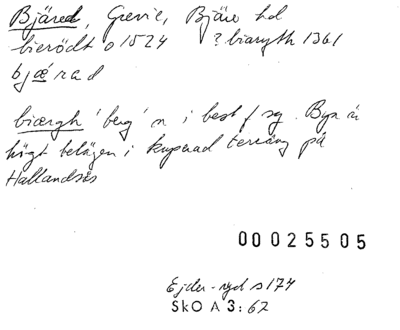 Bjäred, Grevie, Bjäre hd
bierödt o 1524 ? biaryth 1361
bjæ̲rad
biærgh 'berg' n i best f sg. Byn är
högt belägen i kuperad terräng på
Hallandsås
00025505
Ejder-ryd s 174
SkO A 3:62